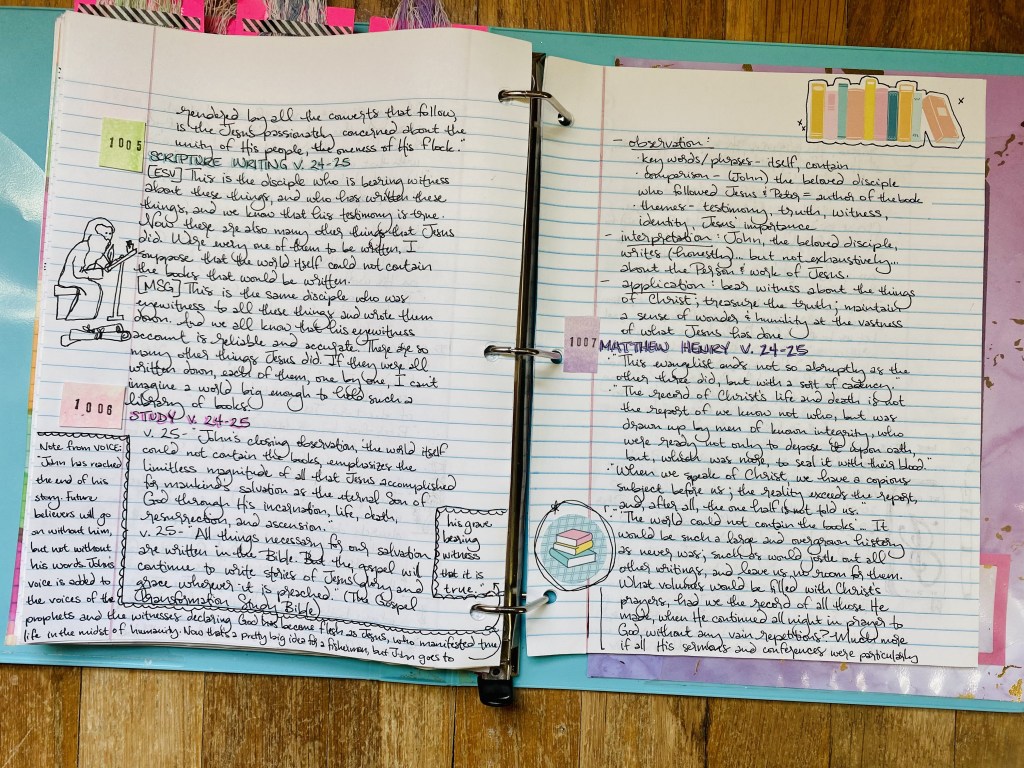 rendered by all the converts that follow,
is the Jesus passionately concerned about the
unity of His people, the oneness of His flock."
1005
SCRIPTURE WRITING V. 24-25
[ESV] This is the disciple who is bearing witness
about these things, and who has written these
things, and we know that his testimony is true.
Now there are also many other things that Jesus
did. Were every one of them to be written, I
suppose that the world itself could not contain
the books that would be written.
[MSG] This is the same disciple who was
eyewitness to all these things and wrote them
down. And we all know that his eyewitness
account is reliable and accurate. There are so
many other things Jesus did. If they were all
written down, each of them, one by one, I can't
imagine a world big enough to hold such a
library of books.
1006
STUDY V. 24-25
v. 25- "John's closing observation, 'the world itself
could not contain the books, emphasizes the
limitless magnitude of all that Jesus accomplished
for mankind's salvation as the eternal Son of
God through His incarnation, life, death,
resurrection, and ascension."
v. 25- "All things necessary for our salvation
are written in the Bible. But the gospel will
continue to write stories of Jesus' glory and
grace wherever it is preached." (The Gospel
Transformation Study Bible)
Note from VOICE:
"John has reached
the end of his
story. Future
believers will go
on without him,
but not without
his words. John's
voice is added to
the voices of the
prophets and the witnesses declaring God has become flesh as Jesus, who manifested true
life in the midst of humanity. Now that's a pretty big idea for a fisherman, but John goes to
his grave
bearing
witness
that it is
true."
- observation:
· key words/phrases - itself, contain
· comparison - (John) the beloved disciple
who followed Jesus & Peter = author of the book
· themes - testimony, truth, witness,
identity, Jesus' importance
- interpretation: John, the beloved disciple,
writes (honestly)... but not exhaustively...
about the Person & work of Jesus.
- application: bear witness about the things
of Christ; treasure the truth; maintain
a sense of wonder & humility at the vastness
of what Jesus has done
1007
MATTHEW HENRY V. 24-25
· "This evangelist ends not so abruptly as the
other three did, but with a sort of cadency."
· "The record of Christ's life and death is not
the report of we know not who, but was
drawn up by men of known integrity, who
were ready not only to depose it upon oath,
but, which was more, to seal it with their blood."
· "When we speak of Christ, we have a copious
subject before us; the reality exceeds the report,
and, after all, the one half is not told us."
· "The world could not contain the books.- It
would be such a large and overgrown history
as never was; such as would jostle out all
other writings, and leave us no room for them.
What volumes would be filled with Christ's
prayers, had we the record of all those He
made, when He continued all night in prayer to
God, without any vain repetitions? Much more
if all His sermons and conferences were particularly